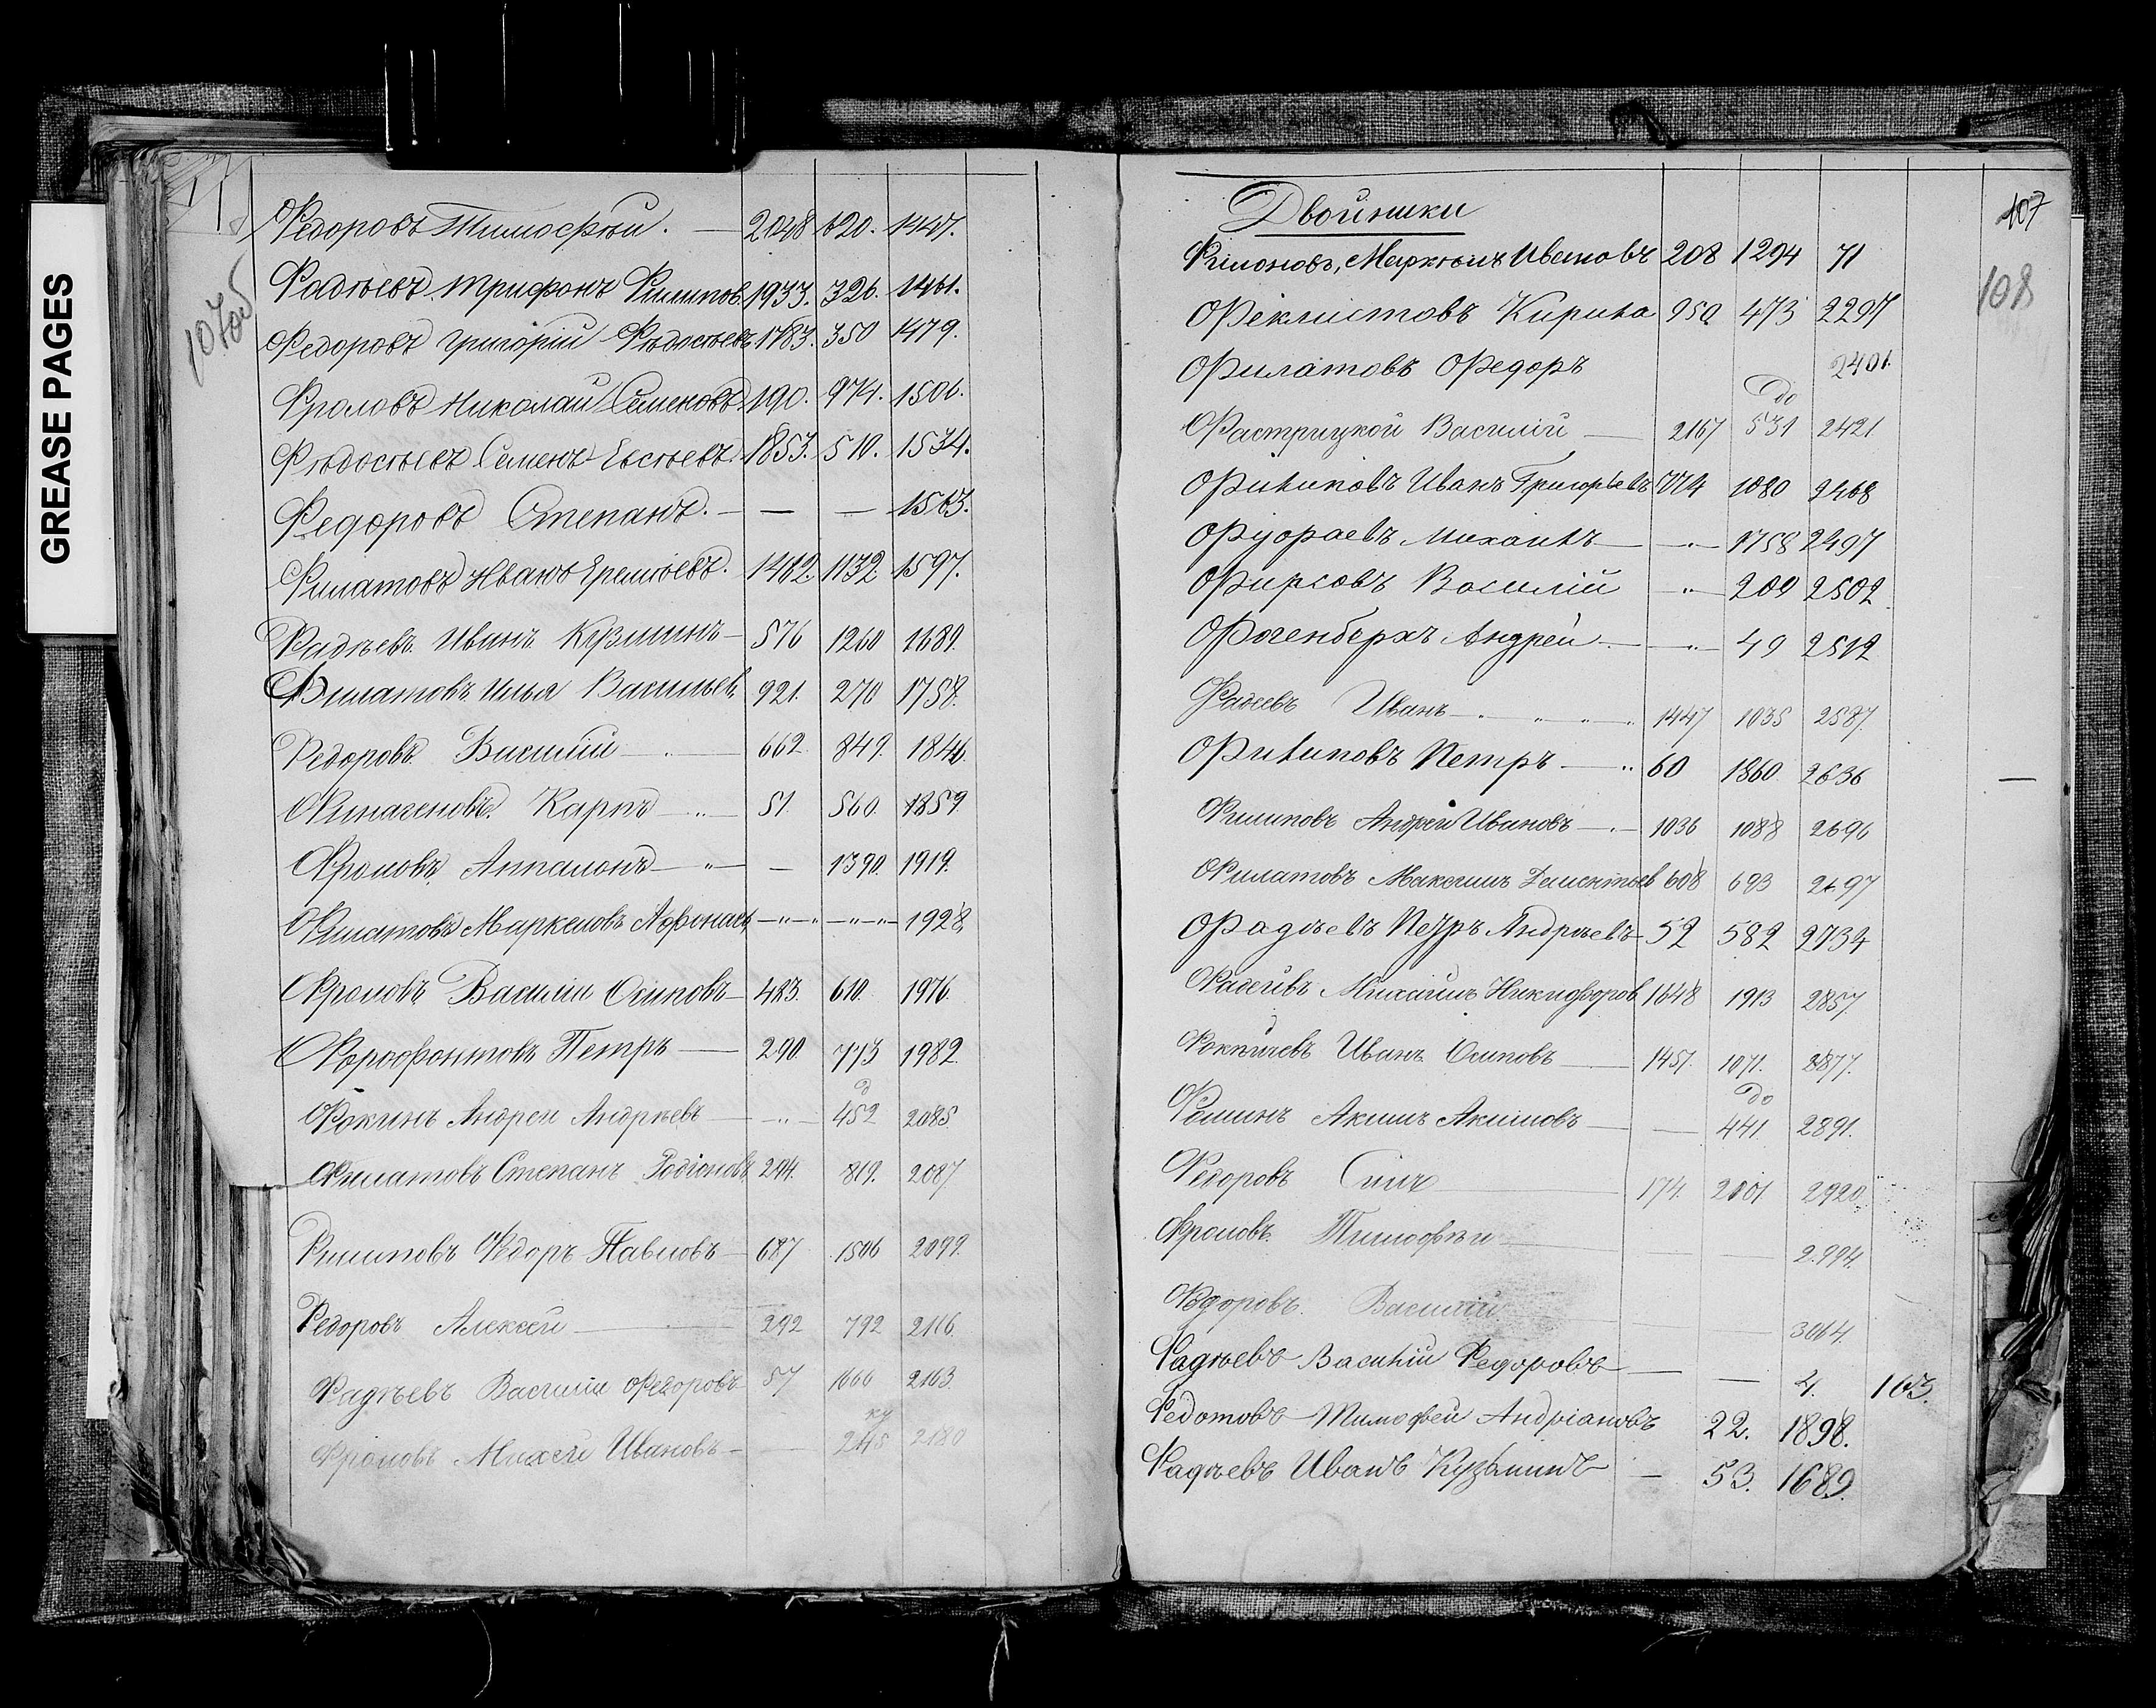 GREASE PAGES
107об
Ѳедоровъ Тимофѣй. — 2048 620. 1447.
Фадѣевъ Трифонъ Филипов. 1933. 326. 1461.
Федоровъ Григорій Ѳѣдосѣевъ 1783. 350 1479.
Фроловъ Николай Семеновъ 190. 974. 1506.
Фѣдосѣевъ Семенъ Евсѣевъ. 1853. 510. 1534.
Федоровъ Степанъ. — — — 1563.
Филатовъ Иванъ Еремѣевъ. 1482. 1132. 1597.
Фадѣевъ Иванъ Кузминъ — 576 1260 1689.
Филатовъ Илья Васильев. 921. 270 1758.
Федоровъ Василій — 662. 849. 1846.
Карпъ — 51. 560. 1859
Фроловъ Аппалонъ — — 1390. 1919.
Филатовъ Маркеловъ Афонась — — 1928.
Фроловъ Василій Осиповъ — 483. 610. 1976.
Петръ — 290. 773 1982.
Фокинъ Андрей Андрѣевъ — — 452 2085.
Филатовъ Степанъ Родіоновъ 294. 819. 2087.
Филиповъ Федоръ Павловъ — 687 1506 2099.
Федоровъ Алексѣй — 292 792 2116.
Фадѣевъ Василій Федоровъ 57 1666 2163.
Фроловъ Михей Ивановъ — — 245 2180
Двойники
107
108
Ивановъ 208 1294 71
Феклистовъ Кирила 950 473 2297
Филатовъ Федоръ 2401.
до
Фастрицкой Василій — 2167 531 2421
Филиповъ Иванъ Григорьевъ 774 1080 2468
Михаилъ — — 1758 2497
Фирсовъ Василій — 209 2502
Фогенберхъ Андрей — — 49 2512
Фадеевъ Иванъ — 1447 1035 2587.
Филиповъ Петръ — 60 1860. 2636
Филиповъ Андрей Ивановъ — 1036 1088 2696
Филатовъ Максимъ Дементьев 608 693 2697
Фадѣевъ Петръ Андрѣевъ — 52 582 2734
Михаилъ Никифоров 1648 1913 2857.
Иванъ Осиповъ — 1451. 1071. 2877.
до
Фоминъ Акимъ Акимовъ — — 441. 2891.
Федоровъ Сила — 174. 2101. 2920.
Фроловъ Тимофѣй — — — 2994.
Федоровъ Василій — — 3064.
Фадѣевъ Василій Федоровъ — — 4. 163.
Федотовъ Тимофей Андріановъ 22. 1898.
Фадѣевъ Иванъ Кузьминъ — 53. 1689.